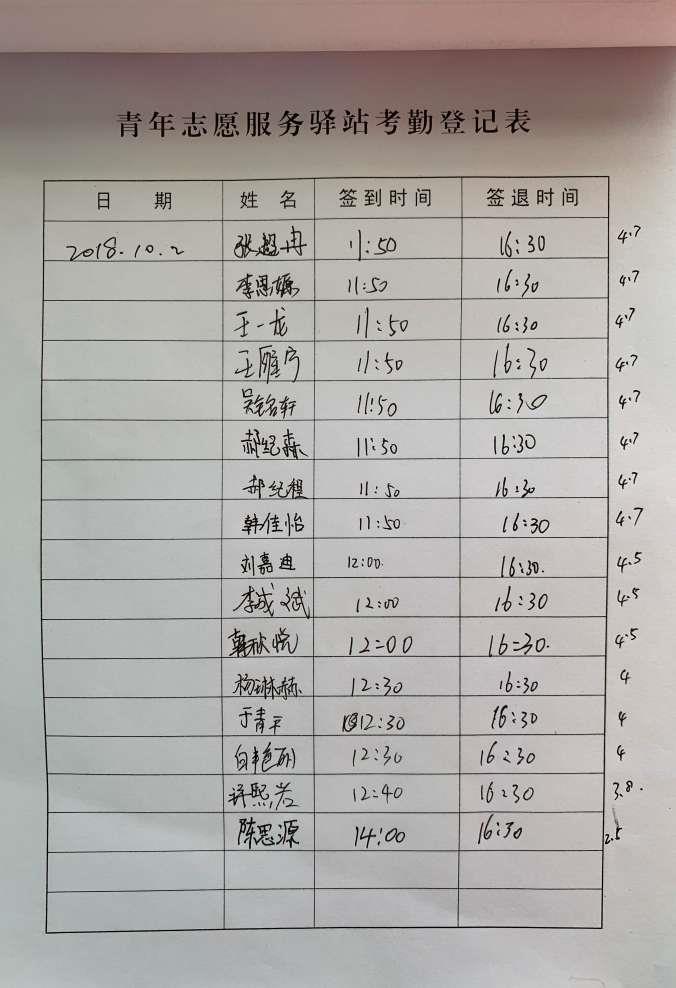 青年志愿服务驿站考勤登记表
日 期 姓 名 签到时间 签退时间
2018.10.2 张超冉 11:50 16:30 4.7
李思嫄 11:50 16:30 4.7
王一龙 11:50 16:30 4.7
王雁宁 11:50 16:30 4.7
吴铭轩 11:50 16:30 4.7
郝纪森 11:50 16:30 4.7
郝纪程 11:50 16:30 4.7
韩佳怡 11:50 16:30 4.7
刘嘉迪 12:00. 16:30. 4.5
李成斌 12:00 16:30 4.5
韩秋悦 12:00 16:30. 4.5
杨琳赫 12:30 16:30 4
于青平 12:30 16:30 4
白艳丽 12:30 16:30 4
12:40 16:30 3.8.
陈思源 14:00 16:30 2.5